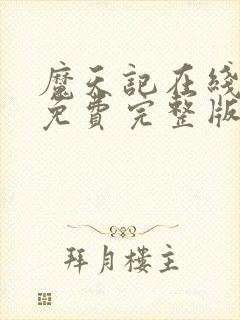 魔天記在綫
免費完整版
拜月樓主